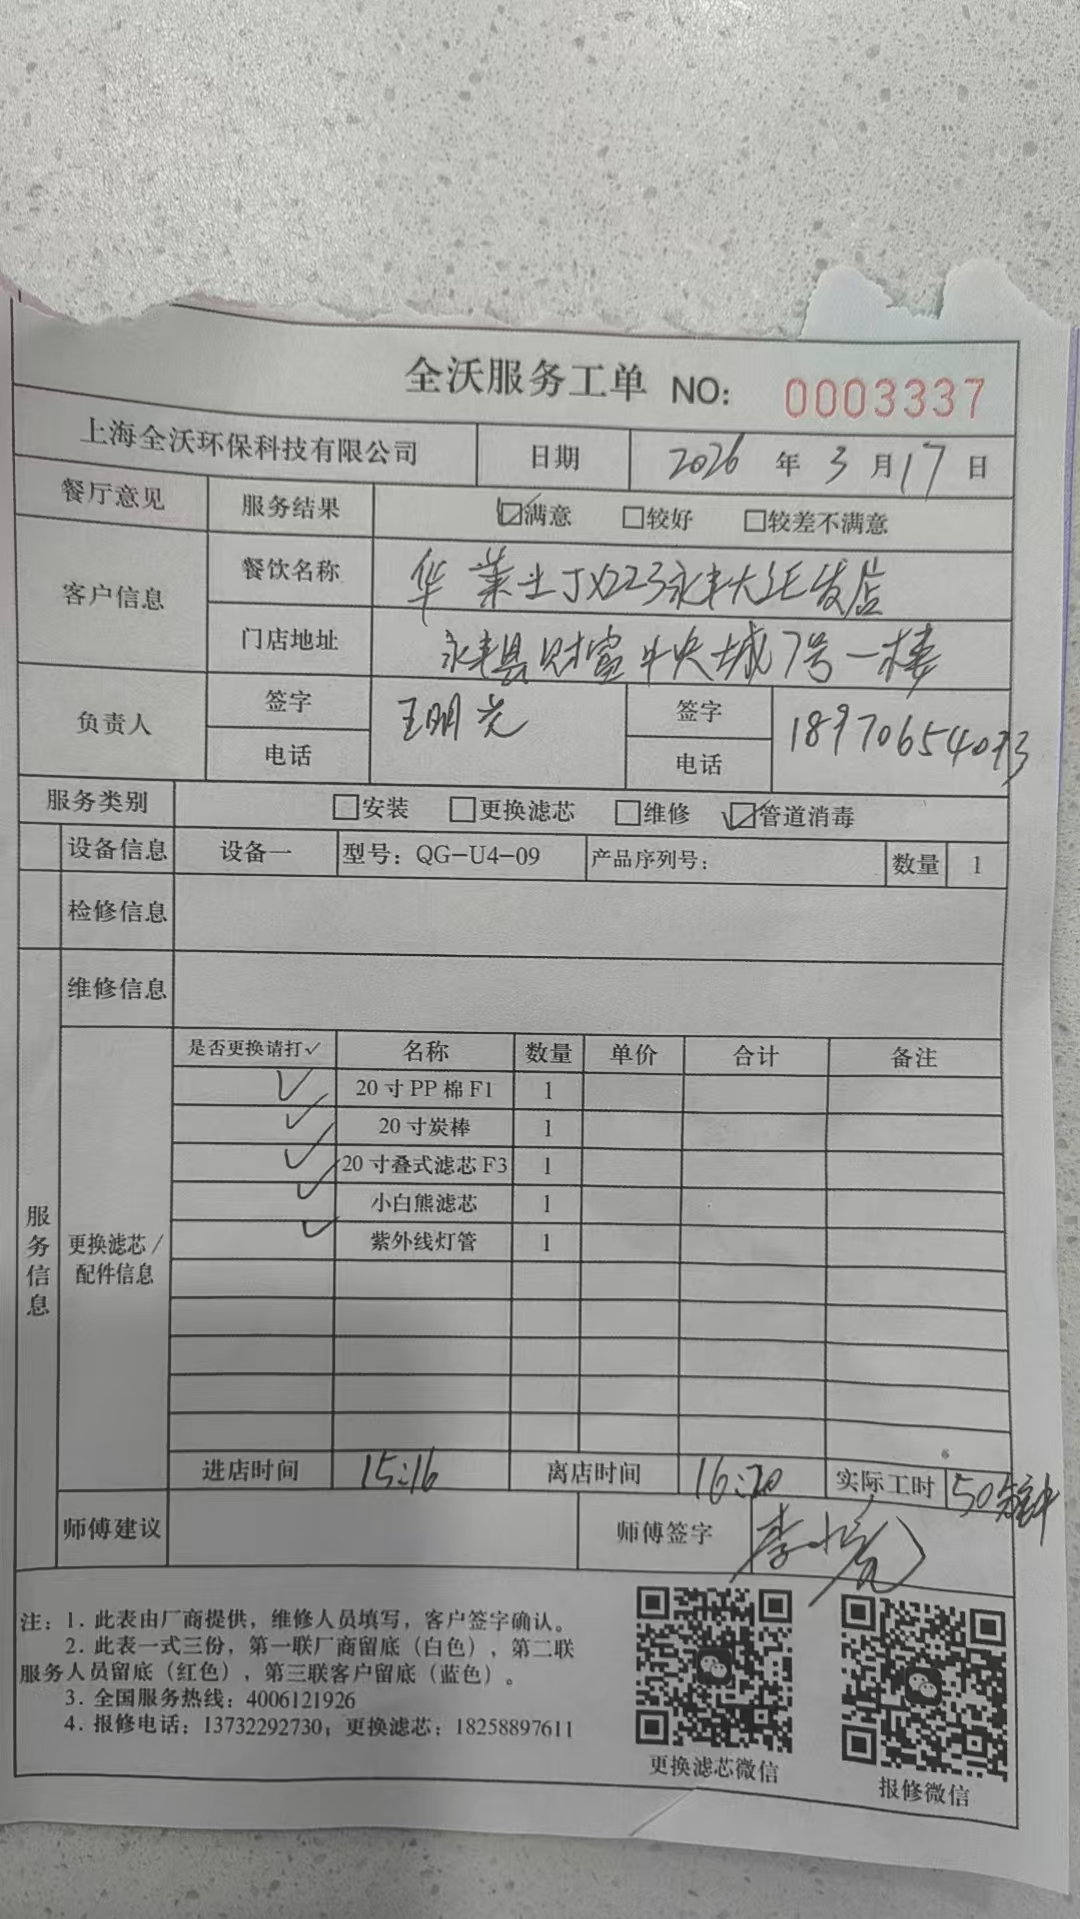 全沃服务工单 NO: 0003337
上海全沃环保科技有限公司 日期 2026 年 3 月 17 日
餐厅意见 服务结果 ☑满意 □较好 □较差不满意
客户信息 餐饮名称 华莱士JX223永丰大汪发店
门店地址 永丰县财富中央城7号一楼
负责人 签字 王明光 签字
电话 电话 18970654093
服务类别 □安装 □更换滤芯 □维修 ☑管道消毒
设备信息 设备一 型号：QG-U4-09 产品序列号： 数量 1
检修信息
维修信息
服务信息 更换滤芯/配件信息
是否更换请打✓ 名称 数量 单价 合计 备注
✓ 20寸PP棉F1 1
✓ 20寸炭棒 1
✓ 20寸叠式滤芯F3 1
✓ 小白熊滤芯 1
✓ 紫外线灯管 1
进店时间 15:16 离店时间 16:20 实际工时 50分钟
师傅建议 师傅签字 李
注：1. 此表由厂商提供，维修人员填写，客户签字确认。
2. 此表一式三份，第一联厂商留底（白色），第二联
服务人员留底（红色），第三联客户留底（蓝色）。
3. 全国服务热线：4006121926
4. 报修电话：13732292730；更换滤芯：18258897611
更换滤芯微信 报修微信